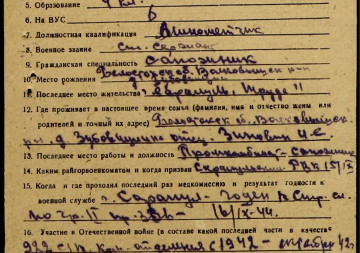 5. Образование 4 кл.
6. На ВУС 6
7. Должностная квалификация Минометчик
8. Военное звание Ст. Сержант
9. Гражданская специальность сапожник
10. Место рождения Белостокская об. Волковышский р-н
11. Последнее место жительства г. Сарапул, Труда 11
12. Где проживает в настоящее время семья (фамилия, имя и отчество жены или
родителей и точный их адрес) Белостокская об. Волковышск.
р-н, д. Зубовщина отец Зинович И.С.
13. Последнее место работы и должность Промкомбинат - сапожник
14. Каким райгорвоенкоматом и когда призван Сарапульским РВК 15/IX
15. Когда и где проходил последний раз медкомиссию и результат годности к
военной службе г. Сарапул - годен к стр. сл.
по гр. II пр. 336 - 16/IX-44.
16. Участие в Отечественной войне (в составе какой последней части в качестве
с 1942 - октябрь 42 г.